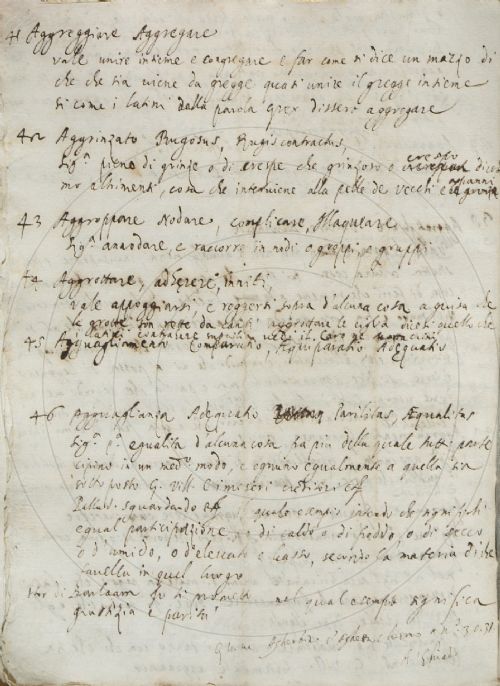 41 Aggreggiare Aggregare
vale unire insieme e congregare e far come si dice un mazzo di
che che sia viene da gregge quasi unire il gregge insieme
si come i latini dalla parola grex dissero aggregare
42 Aggrinzato Rugosus, Rugis contractus,
sigª piene di grinze o di crespe che grinzoso e crespo dicia
mo altrimenti, cosa che interviene alla pelle de vecchi e
43 Aggroppare Nodare, complicare, Illaqueare
sigª annodare, e raccorre in nodi o groppi, o gruppi
44 Aggrottare, adherere, inniti,
vale appoggiarsi, e reggersi sopra d'alcuna cosa a guisa che
le grotte son rette da aggrottare le ciglia
45 Agguagliamento Comparatio, Aequiparatio Adequatio
46 Agguaglianza Adequatio Parilitas, Æqualitas
sigª pª egualità d'alcuna cosa ha più della quale tutti parte
cipino in un medº modo, e ognuno egualmente a quella sia
sottoposto G. Vill. E
sguardando il quale esempio intendo che significhi
egual participazione, o di caldo o di freddo, o di secco
o d'umido, o d'elevato e basso, secondo la materia di che
favella in quel luogo
nel qual esempio significa
giustizia e parità